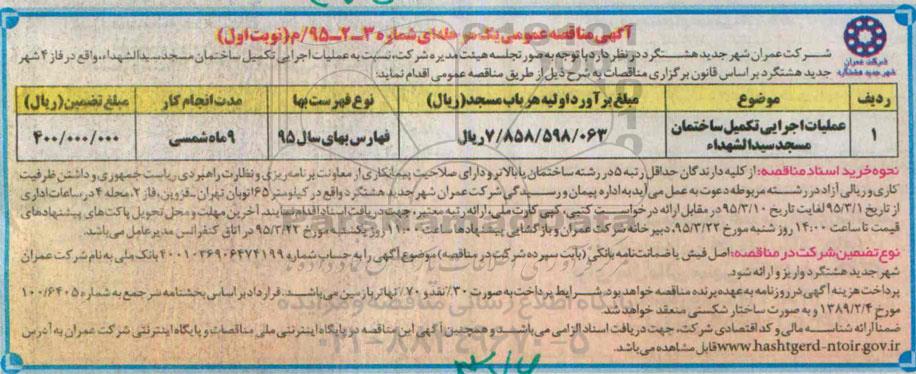 آگهی مناقصه عمومی یک مرحله‌ای شماره ۳-۲-۹۵/م (نوبت اول)
شرکت عمران شهر جدید هشتگرد
شرکت عمران شهر جدید هشتگرد در نظر دارد با توجه به مجوز جلسه هیئت مدیره شرکت، نسبت به عملیات اجرایی تکمیل ساختمان مسجد سیدالشهداء، واقع در فاز ۴ شهر
جدید هشتگرد بر اساس قانون برگزاری مناقصات به شرح ذیل از طریق مناقصه عمومی اقدام نماید:
ردیف موضوع مبلغ برآورد اولیه هر باب مسجد (ریال) نوع فهرست بها مدت انجام کار مبلغ تضمین (ریال)
۱ عملیات اجرایی تکمیل ساختمان مسجد سیدالشهداء ۷/۸۵۸/۵۹۸/۰۶۳ ریال فهارس بهای سال ۹۵ ۹ ماه شمسی ۴۰۰/۰۰۰/۰۰۰
نحوه خرید اسناد مناقصه: از کلیه دارندگان حداقل رتبه ۵ در رشته ساختمان یا بالاتر و دارای صلاحیت پیمانکاری از معاونت برنامه‌ریزی و نظارت راهبردی ریاست جمهوری و داشتن ظرفیت
کاری و ریالی آزاد در رشته مربوطه دعوت به عمل می‌آید به اداره پیمان و رسیدگی شرکت عمران شهر جدید هشتگرد واقع در کیلومتر ۶۵ اتوبان تهران ـ قزوین، فاز ۲، محله ۴ در ساعات اداری
از تاریخ ۹۵/۳/۱ لغایت تاریخ ۹۵/۳/۱۰ در مقابل ارائه درخواست کتبی، کپی کارت ملی، ارائه رتبه معتبر، جهت دریافت اسناد اقدام نمایند. آخرین مهلت و محل تحویل پاکت‌های پیشنهادهای
قیمت تا ساعت ۱۴:۰۰ روز شنبه مورخ ۹۵/۳/۲۲، دبیرخانه شرکت عمران و بازگشایی پیشنهادها ساعت ۱۱:۰۰ روز یکشنبه مورخ ۹۵/۳/۲۳ در اتاق کنفرانس مدیرعامل می‌باشد.
نوع تضمین شرکت در مناقصه: اصل فیش یا ضمانت‌نامه بانکی (بابت سپرده شرکت در مناقصه) موضوع آگهی را به حساب شماره ۴۰۰۱۰۳۶۹۰۶۴۷۴۱۹۹ بانک ملی به نام شرکت عمران
شهر جدید هشتگرد واریز و ارائه شود.
پرداخت هزینه آگهی در روزنامه به عهده برنده مناقصه خواهد بود. شرایط پرداخت به صورت ۳۰٪ نقد و ۷۰٪ تهاتر با زمین می‌باشد. قرارداد بر اساس بخشنامه سرجمع به شماره ۱۰۰/۶۴۰۵
مورخ ۱۳۸۹/۲/۴ و به صورت ساختار شکستی منعقد خواهد شد.
ضمنا ارائه شناسه مالی و کد اقتصادی شرکت، جهت دریافت اسناد الزامی می‌باشد و همچنین آگهی این مناقصه در پایگاه اینترنتی ملی مناقصات و پایگاه اینترنتی شرکت عمران به آدرس
www.hashtgerd-ntoir.gov.ir قابل مشاهده می‌باشد.
پایگاه اطلاع رسانی مناقصه و مزایده
۰۲۱-۸۸۳۴۹۶۷۰-۵